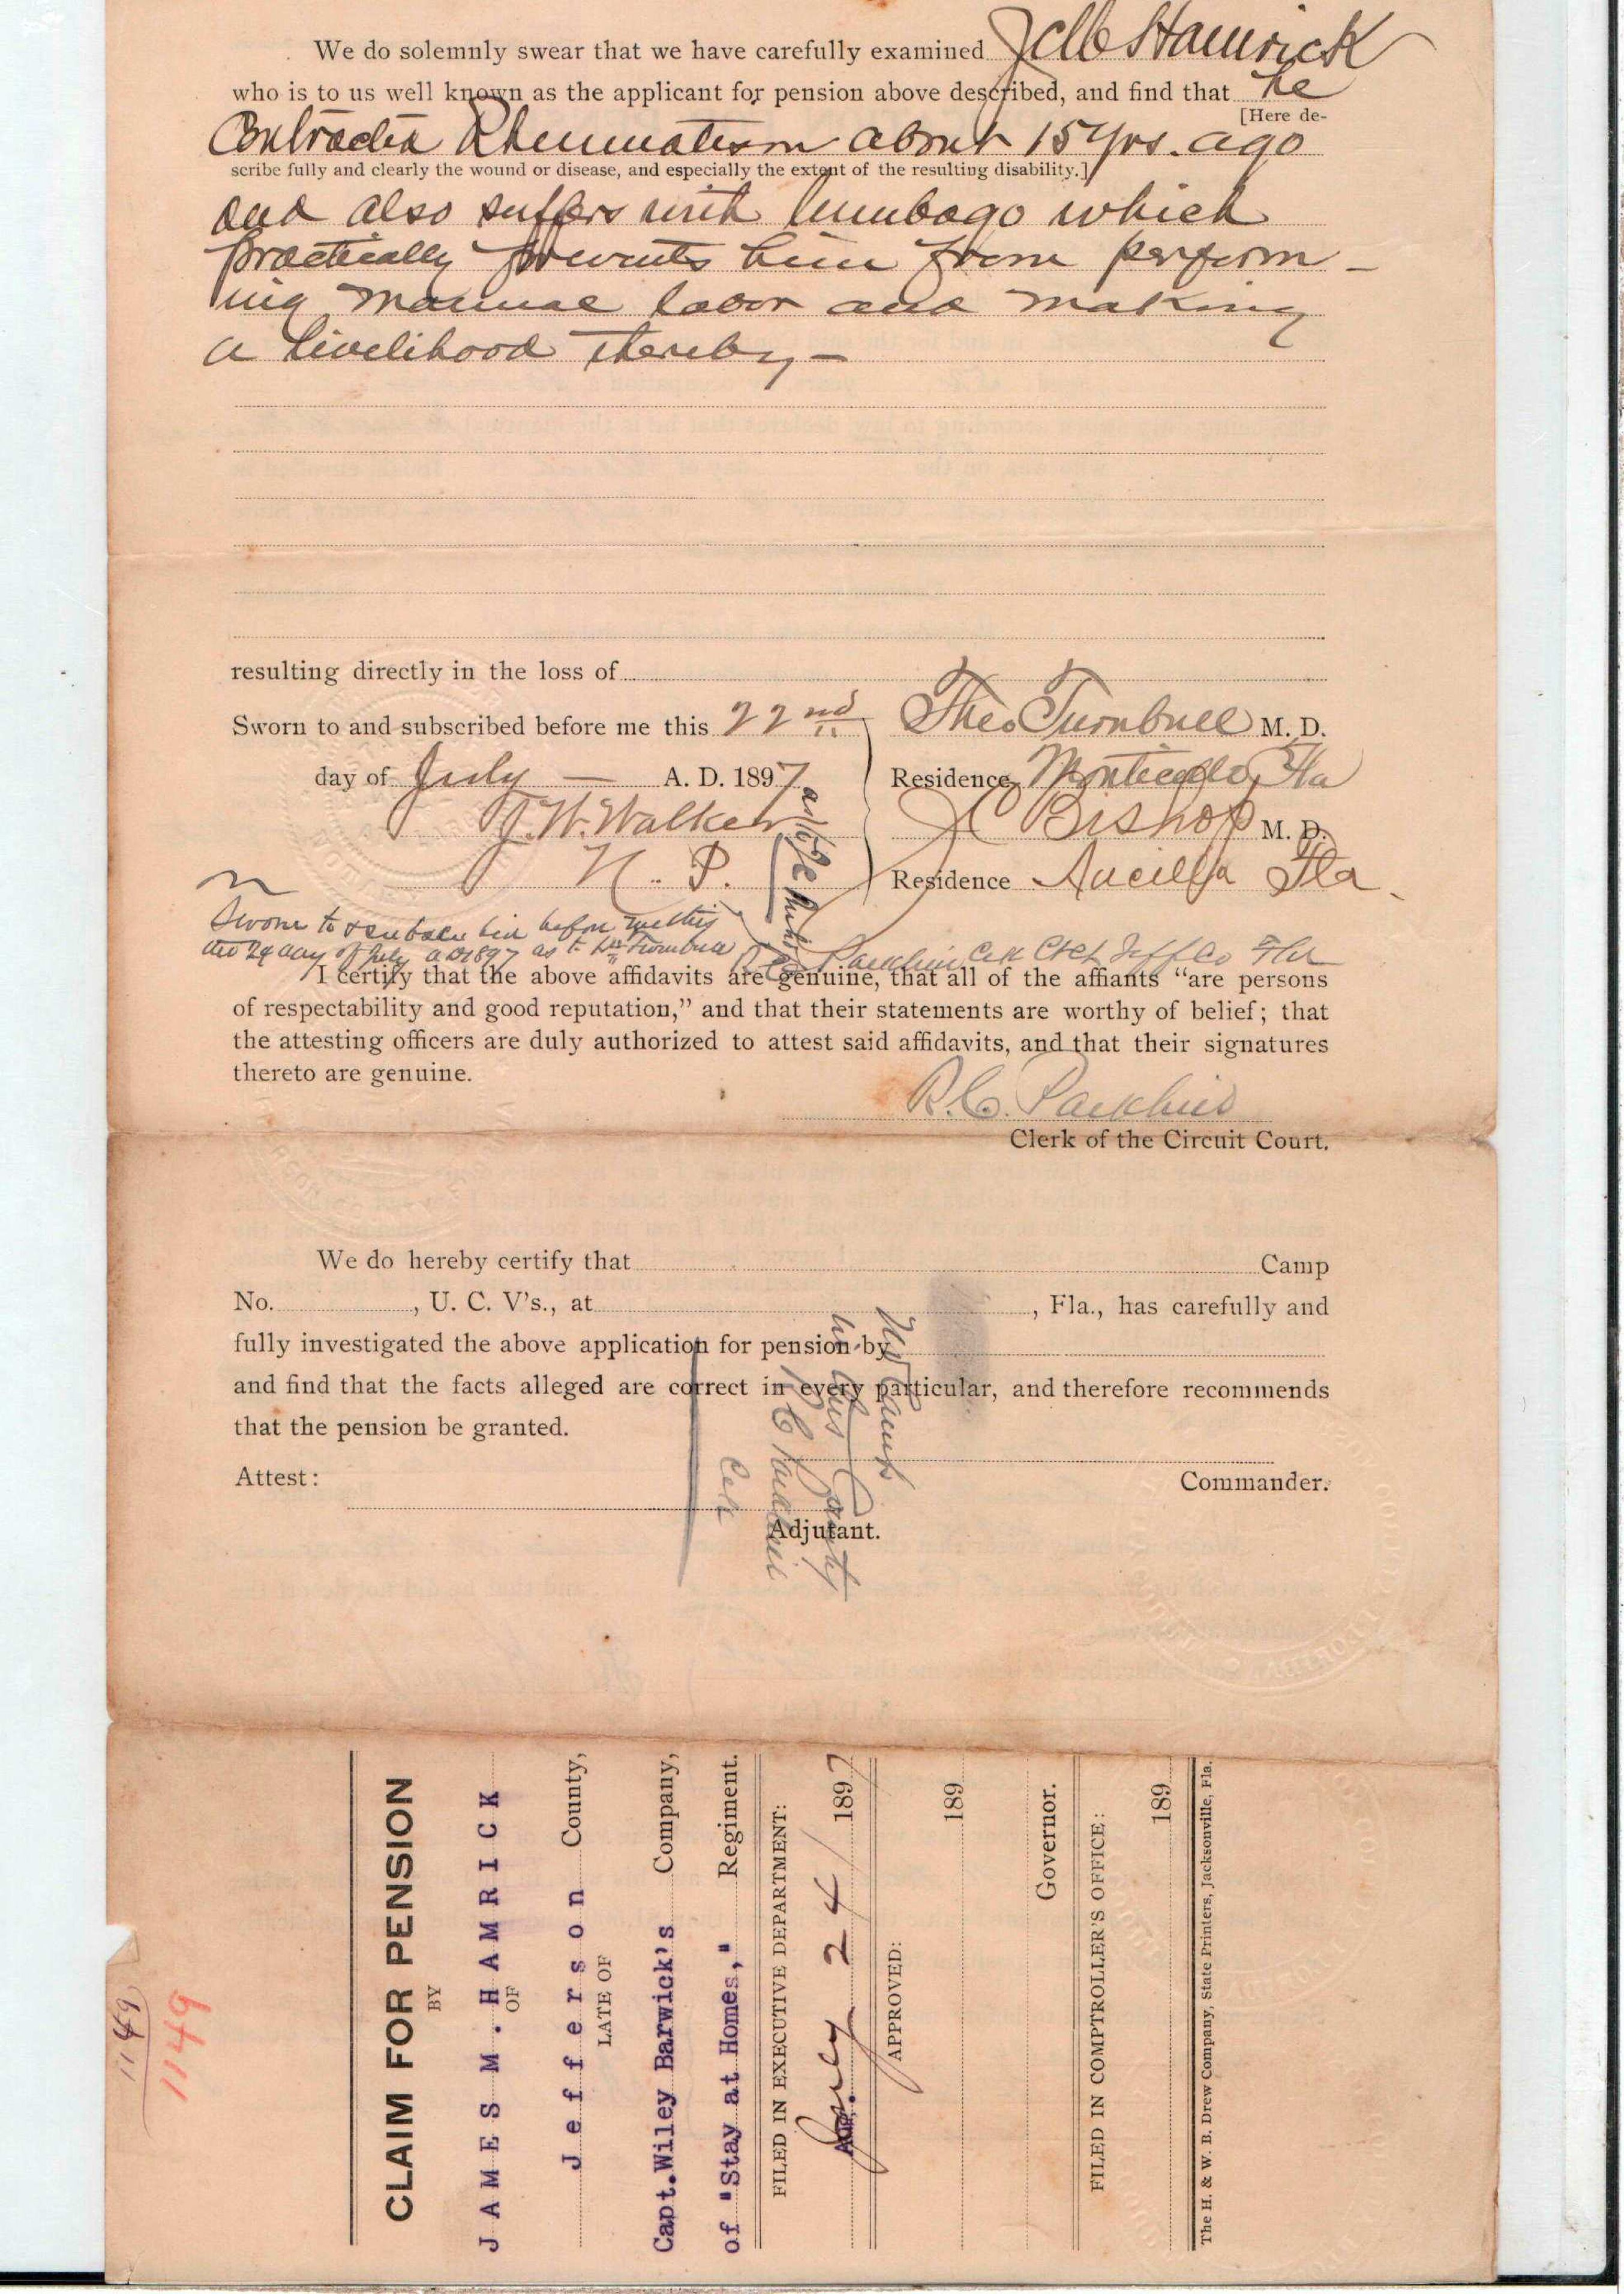 We do solemnly swear that we have carefully examined Hamrick
who is to us well known as the applicant for pension above described, and find that he
[Here de-
Contracted Rheumatism about 15 yrs. ago
scribe fully and clearly the wound or disease, and especially the extent of the resulting disability.]
and also suffers with lumbago which
practically prevents him from perform-
ing manual labor and making
a livelihood thereby —
resulting directly in the loss of
Sworn to and subscribed before me this 22nd
day of July — A. D. 1897
J. W. Walker
N. P.
Theo Turnbull M. D.
Residence Monticello, Fla
J C Bishop M. D.
Residence Aucilla Fla.
Sworn to & before me this
the day of July AD 1897 as to Turnbull
Clk Jeff Co Fla
I certify that the above affidavits are genuine, that all of the affiants “are persons
of respectability and good reputation,” and that their statements are worthy of belief; that
the attesting officers are duly authorized to attest said affidavits, and that their signatures
thereto are genuine.
R. C. Parkhill
Clerk of the Circuit Court.
We do hereby certify that Camp
No. , U. C. V's., at , Fla., has carefully and
fully investigated the above application for pension by
and find that the facts alleged are correct in every particular, and therefore recommends
that the pension be granted.
Attest:
Commander.
Adjutant.
No Camp
in this County
R C Parkhill
Clk
CLAIM FOR PENSION
BY
JAMES M. HAMRICK
OF
Jefferson County,
LATE OF
Capt. Wiley Barwick's Company,
of "Stay at Homes," Regiment.
FILED IN EXECUTIVE DEPARTMENT:
July 24/ 1897
APPROVED:
189
Governor.
FILED IN COMPTROLLER'S OFFICE:
189
The H. & W. B. Drew Company, State Printers, Jacksonville, Fla.
1149
1149